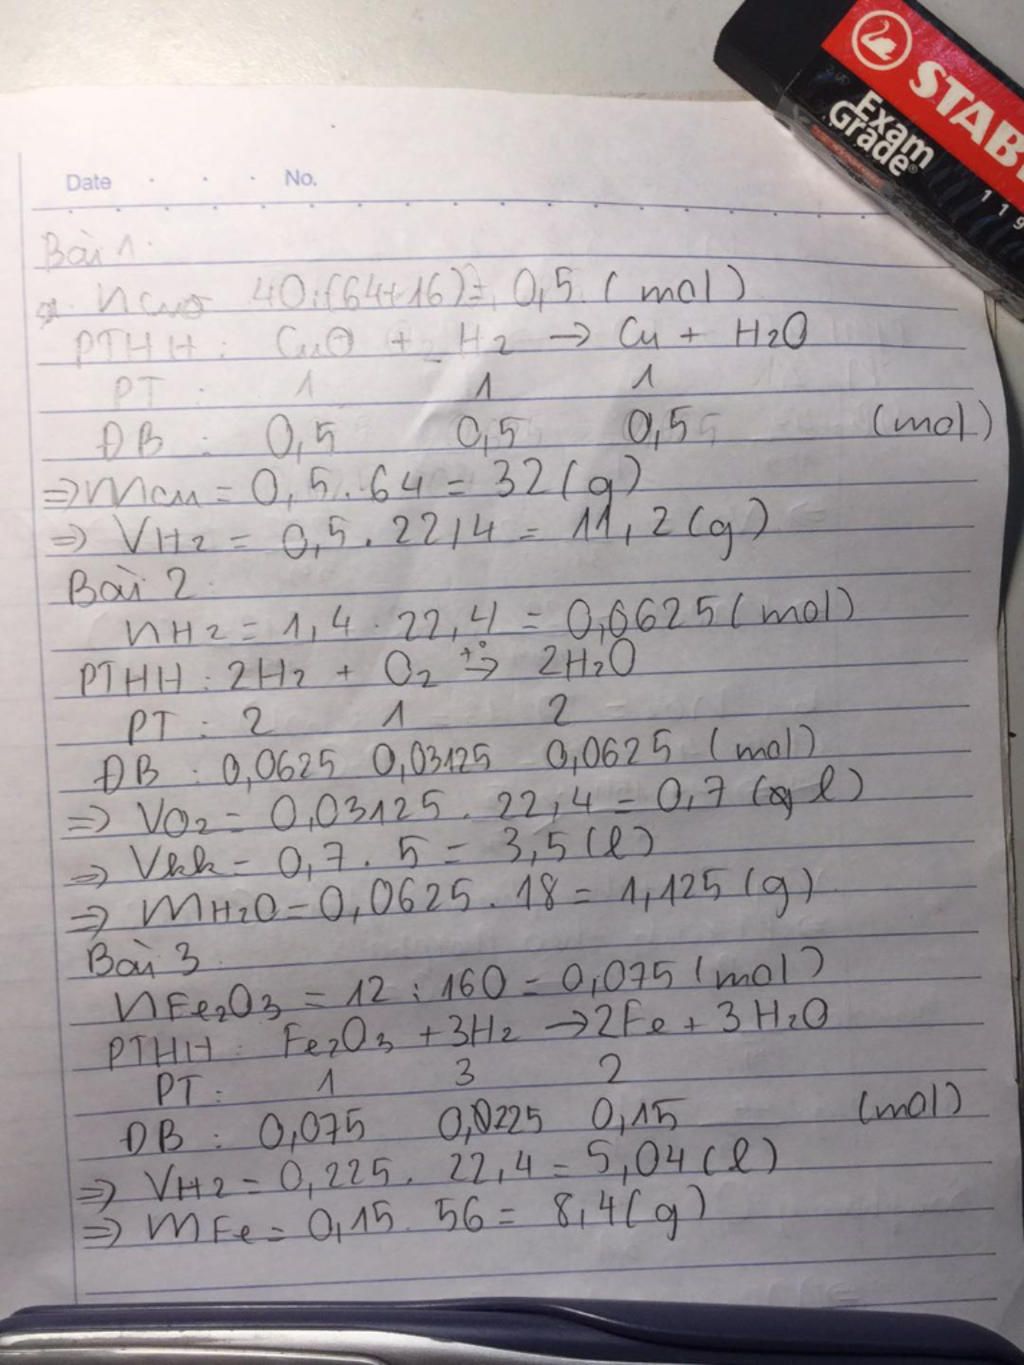 STAB
Exam
Grade®
119
Date . . . No.
Bài 1:
nCuO 40:(64+16)= 0,5 (mol)
PTHH: CuO + H2 → Cu + H2O
PT : 1 1 1
ĐB : 0,5 0,5 0,5 (mol)
⇒ mCu = 0,5 . 64 = 32 (g)
⇒ VH2 = 0,5 . 22,4 = 11,2 (g)
Bài 2:
nH2 = 1,4 . 22,4 = 0,0625 (mol)
PTHH: 2H2 + O2 t°→ 2H2O
PT : 2 1 2
ĐB : 0,0625 0,03125 0,0625 (mol)
⇒ VO2 = 0,03125 . 22,4 = 0,7 (l)
⇒ Vkk = 0,7 . 5 = 3,5 (l)
⇒ mH2O = 0,0625 . 18 = 1,125 (g)
Bài 3:
nFe2O3 = 12 : 160 = 0,075 (mol)
PTHH: Fe2O3 + 3H2 → 2Fe + 3H2O
PT : 1 3 2
ĐB : 0,075 0,0225 0,15 (mol)
⇒ VH2 = 0,225 . 22,4 = 5,04 (l)
⇒ mFe = 0,15 . 56 = 8,4 (g)